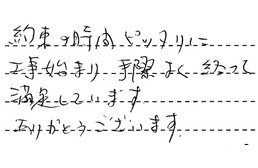 約束の時間ピッタリに
工事始まり手際よく終って
満足しています
ありがとうございます。